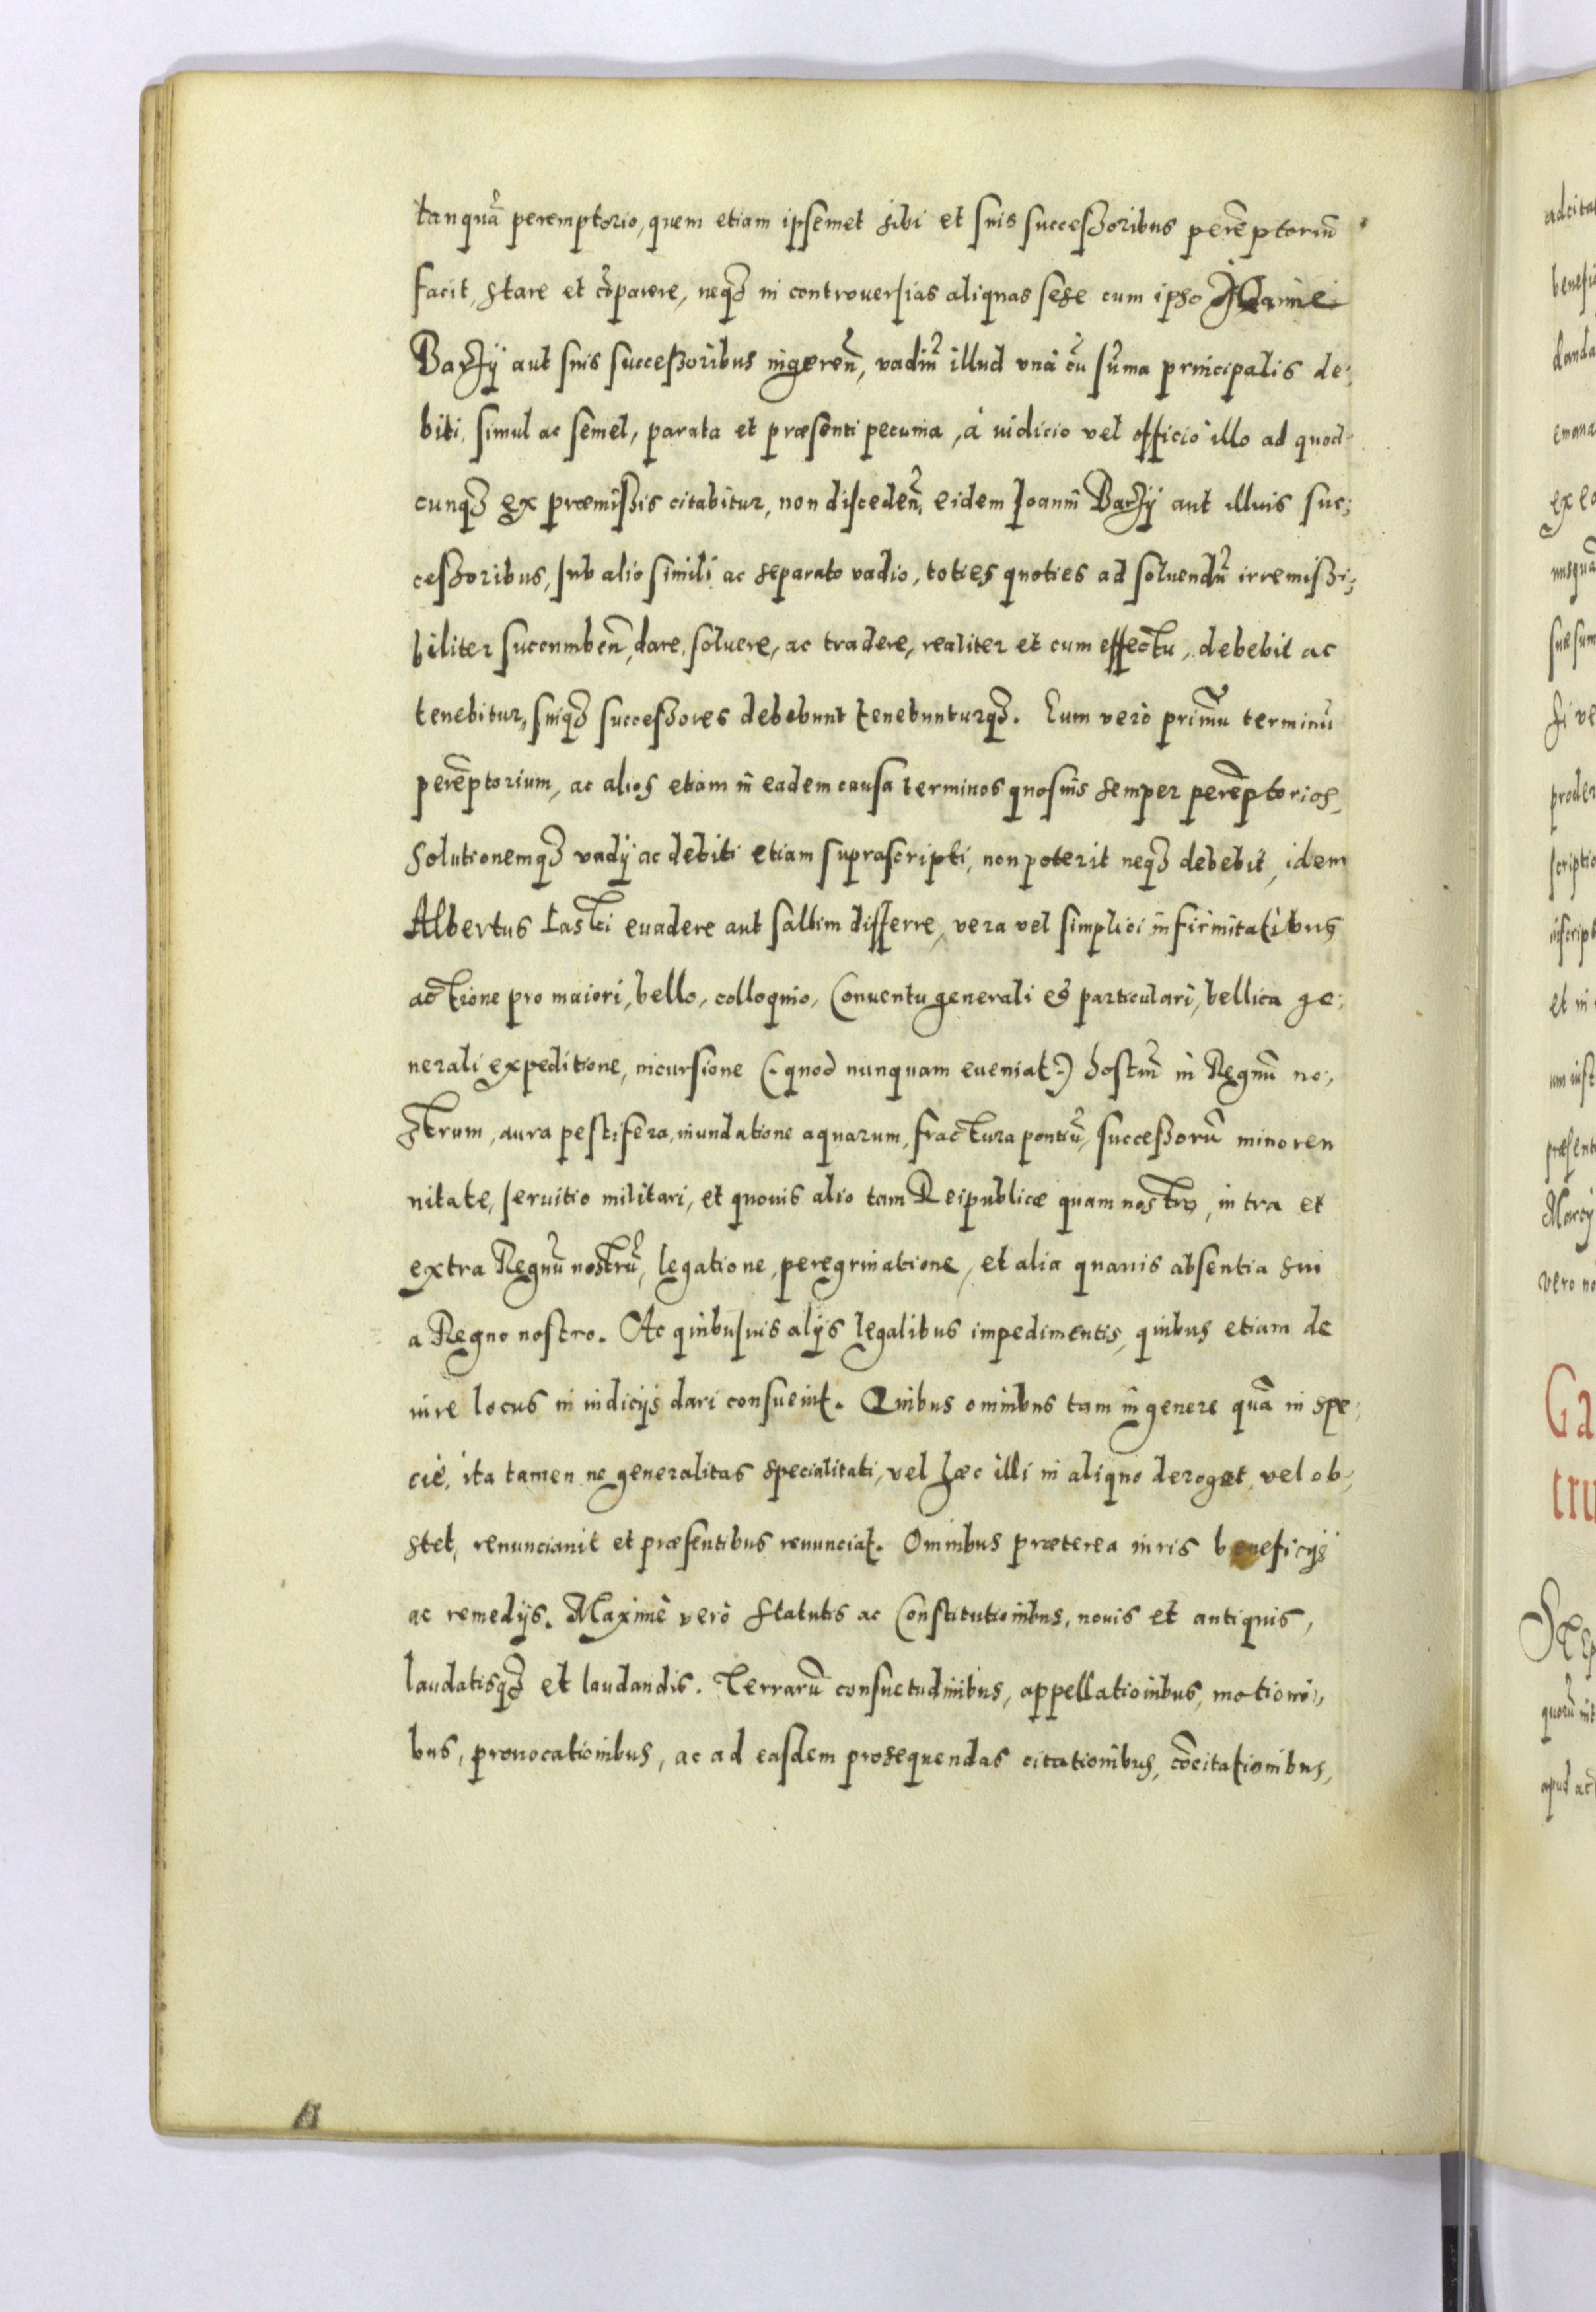 tanquā peremptorio, quem etiam ipsemet sibi et suis successoribus perēptoriū
facit, stare et cōparere, neqȝ in controuersias aliquas sese cum ipso Joanne
Barzÿ aut suis successoribus ingeren̄, vadiū illud vnà cū sūma principalis de:
biti, simul ac semel, parata et præsenti pecunia, à iudicio vel officio illo ad quod
cunqȝ ex præmissis citabitur, non disceden̄, eidem Joanni Barzÿ aut illius suc:
cessoribus, sub alio simili ac separato vadio, toties quoties ad soluendū irremissi:
biliter succumben̄, dare, soluere, ac tradere, realiter et cum effectu, debebit ac
tenebitur, suiqȝ successores debebunt tenebunturqȝ. Eum verò primū terminū
perēptorium, ac alios etiam in eadem causa terminos quosuis semper perēptorios,
Solutionemqȝ vadÿ ac debiti etiam suprascripti, non poterit neqȝ debebit, idem
Albertus Lasti euadere aut saltim differre, vera vel simplici infirmitatibus
actione pro maiori, bello, colloquio, Conuentu generali et particulari, bellica ge:
nerali expeditione, incursione (: quod nunquam eueniat :) hostiū in Regnū no:
strum, aura pestifera, inundatione aquarum, fractura pontiū, successorū minoren
nitate, seruitio militari, et quouis alio tam Reipublicæ quam nostro, intra et
extra Regnū nostrū, legatione, peregrinatione, et alia quauis absentia sui
a Regno nostro. Ac quibusuis alÿs legalibus impedimentis, quibus etiam de
iure locus in iudicÿs dari consueuit. Quibus omnibus tam in genere quā in spe:
cie, ita tamen ne generalitas specialitati, vel hæc illi in aliquo deroget, vel ob:
stet, renunciauit et præsentibus renunciat. Omnibus præterea iuris beneficÿs
ac remedÿs. Maximè verò Statutis ac Constitutionibus, nouis et antiquis,
laudatisqȝ et laudandis. Terrarū consuetudinibus, appellationibus, motioni:
bus, prouocationibus, ac ad easdem prosequendas citationibus, cōcitationibus,